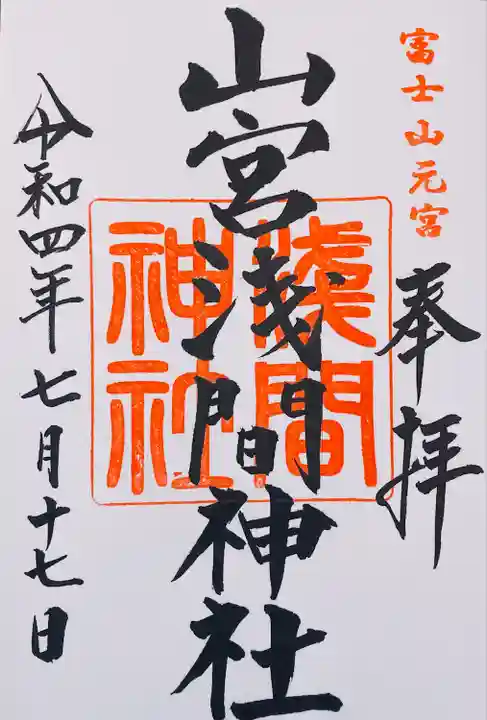 富士山元宮
奉拝
山宮浅間神社
浅間
神社
令和四年七月十七日